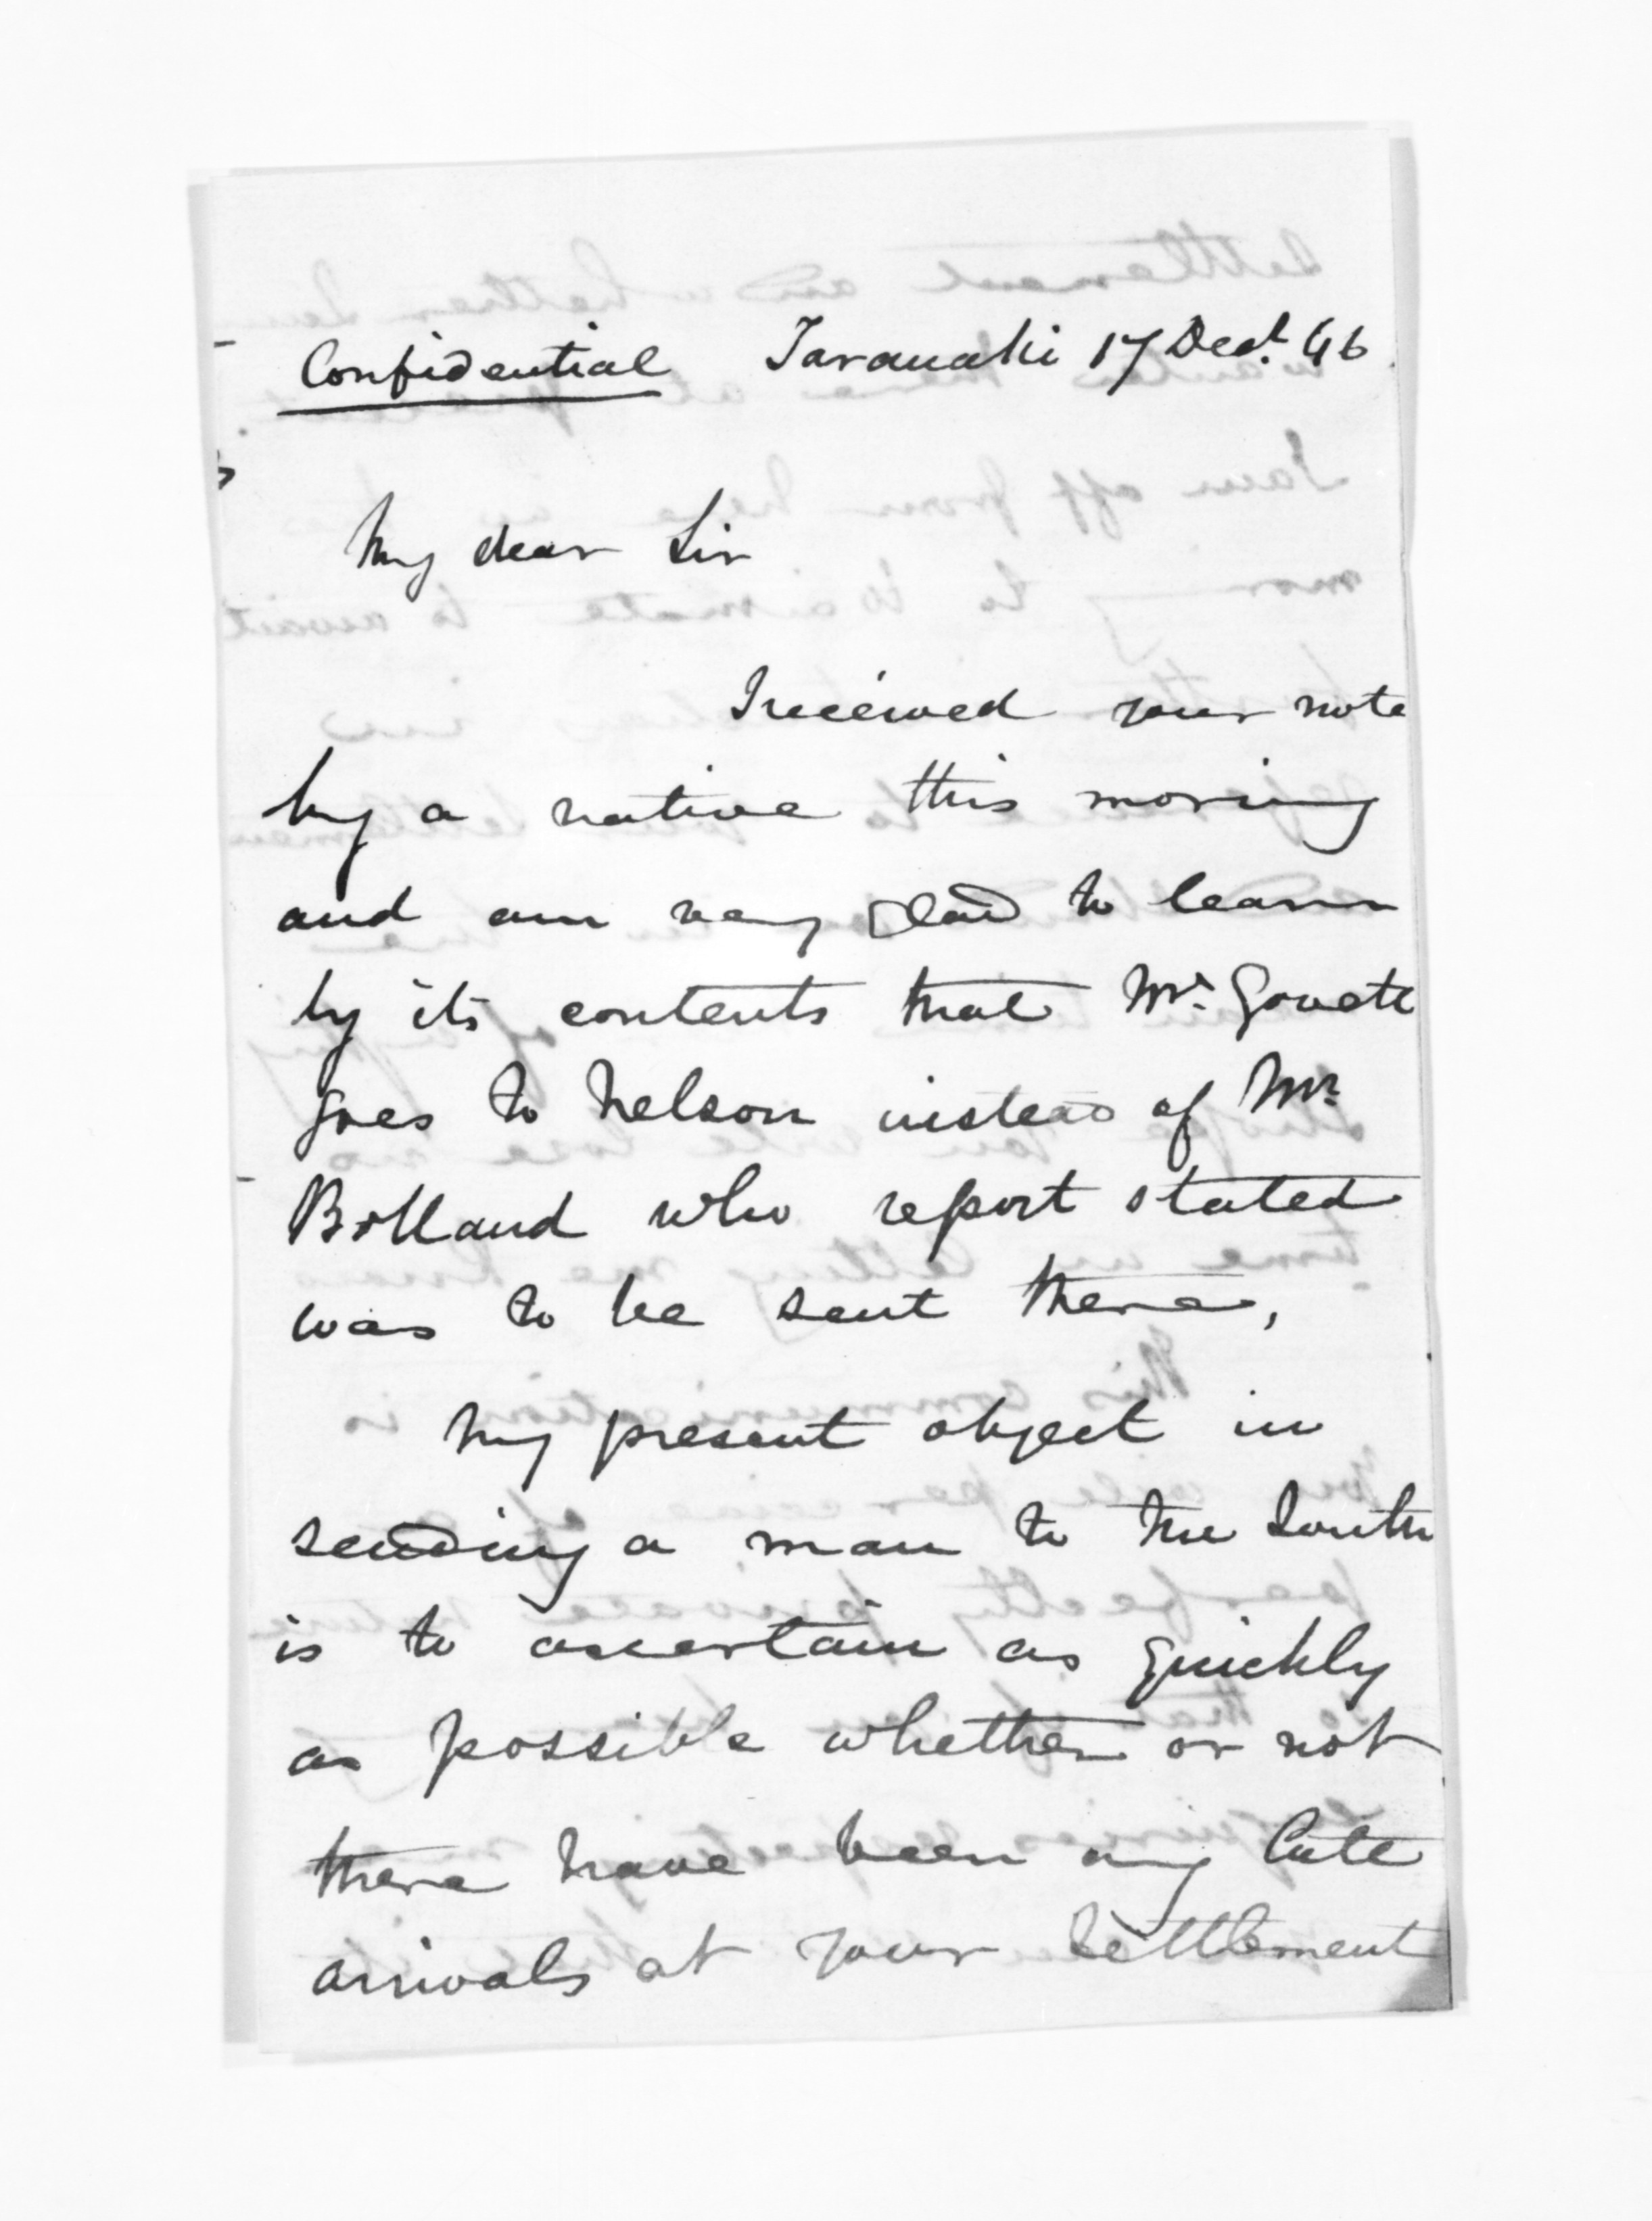 Confidential Taranaki 17 Decr. 46
My dear Sir
I received your note
by a native this morning
and am very glad to learn
by its contents that Mr. Govett
goes to Nelson instead of Mr.
Bolland who report stated
was to be sent there,
My present object in
sending a man to the South
is to ascertain as quickly
as possible whether or not
there have been any late
arrivals at your Settlement